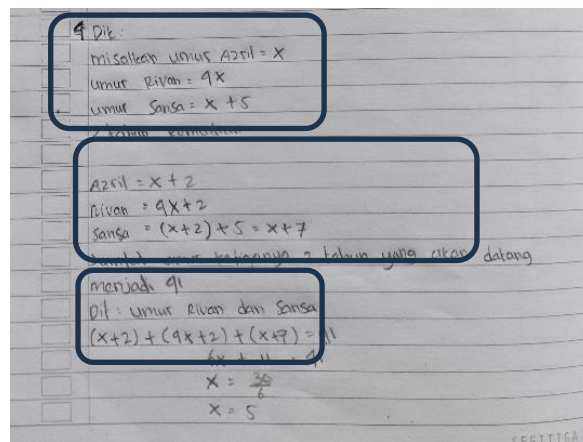 4 Dik:
misalkan umur Azril = x
umur Rivan = 4x
umur Sansa = x + 5
2 tahun kemudian
Azril = x + 2
Rivan = 4x + 2
Sansa = (x+2) + 5 = x + 7
Jumlah umur ketiganya 2 tahun yang akan datang
menjadi 41
Dit : umur Rivan dan Sansa
(x+2) + (4x+2) + (x+7) = 41
6x + 11 = 41
x = 30/6
x = 5